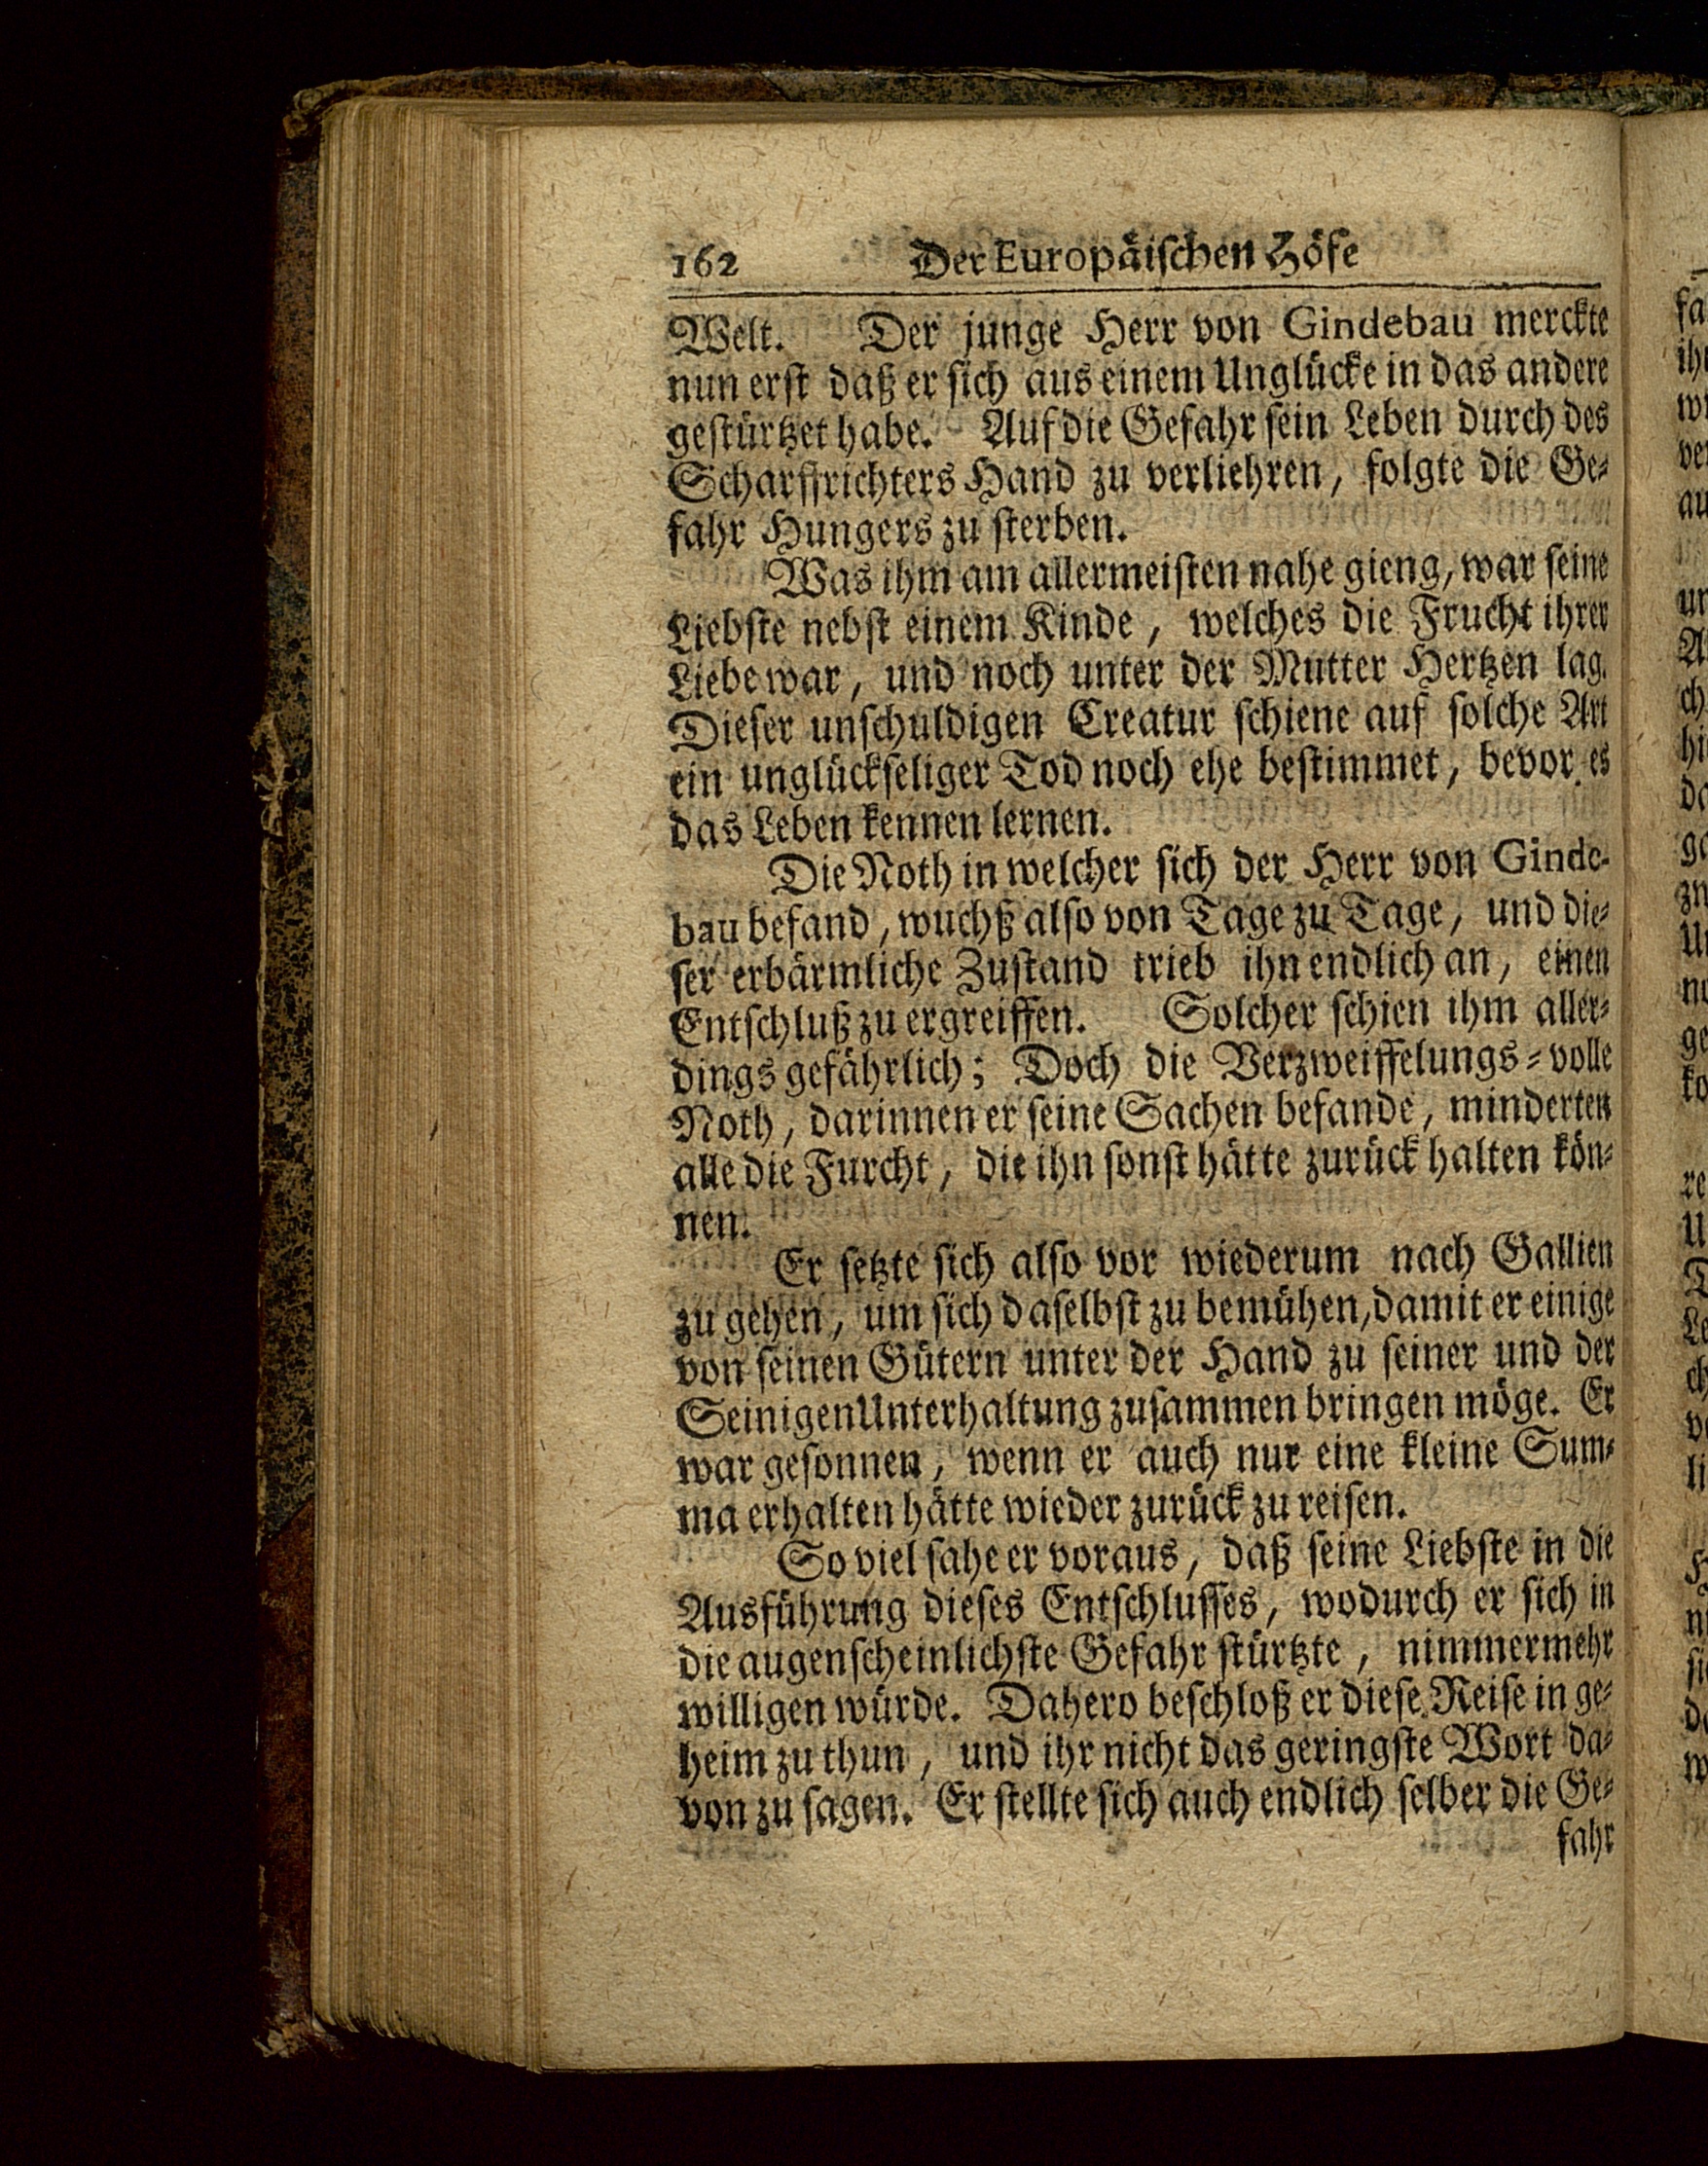 162 Der Europäischen Höfe
Welt. Der junge Herr von Gindebau merckte
nun erst daß er sich aus einem Unglücke in das andere
gestürtzet habe. Auf die Gefahr sein Leben durch des
Scharffrichters Hand zu verliehren, folgte die Ge-
fahr Hungers zu sterben.
Was ihm am allermeisten nahe gieng, war seine
Liebste nebst einem Kinde, welches die Frucht ihrer
Liebe war, und noch unter der Mutter Hertzen lag.
Dieser unschuldigen Creatur schiene auf solche Art
ein unglückseliger Tod noch ehe bestimmet, bevor es
das Leben kennen lernen.
Die Noth in welcher sich der Herr von Ginde-
bau befand, wuchß also von Tage zu Tage, und die-
ser erbärmliche Zustand trieb ihn endlich an, einen
Entschluß zu ergreiffen. Solcher schien ihm aller-
dings gefährlich; Doch die Verzweiffelungs-volle
Noth, darinnen er seine Sachen befande, minderten
alle die Furcht, die ihn sonst hätte zurück halten kön-
nen.
Er setzte sich also vor wiederum nach Gallien
zu gehen, um sich daselbst zu bemühen, damit er einige
von seinen Gütern unter der Hand zu seiner und der
Seinigen Unterhaltung zusammen bringen möge. Er
war gesonnen, wenn er auch nur eine kleine Sum-
ma erhalten hätte wieder zurück zu reisen.
So viel sahe er voraus, daß seine Liebste in die
Ausführung dieses Entschlusses, wodurch er sich in
die augenscheinlichste Gefahr stürtzte, nimmermehr
willigen würde. Dahero beschloß er diese Reise in ge-
heim zu thun, und ihr nicht das geringste Wort da-
von zu sagen. Er stellte sich auch endlich selber die Ge-
fahr